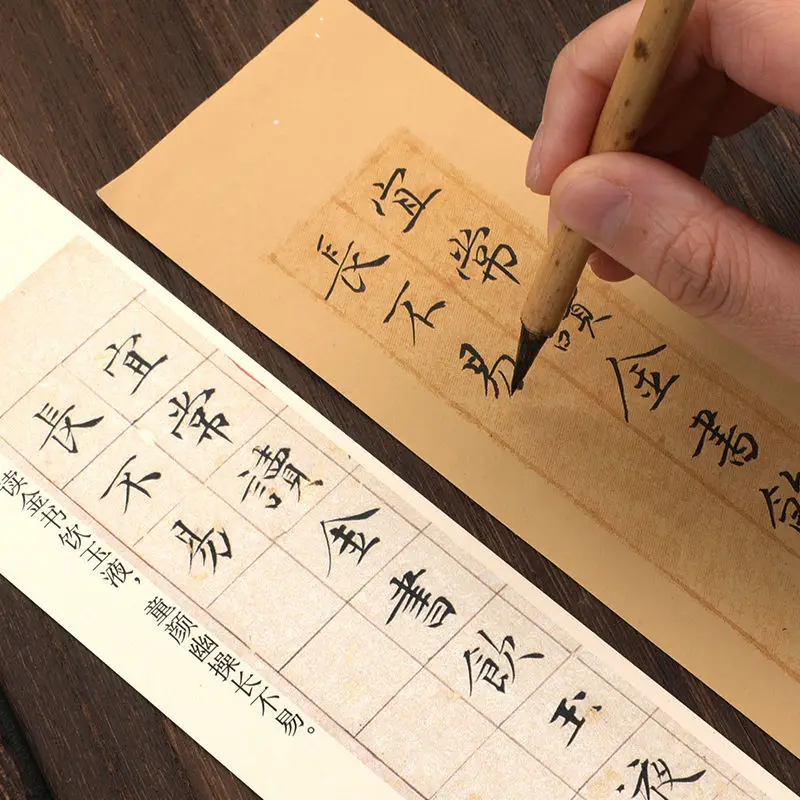 宜常讀金書
長不易
宜常讀金書飲玉液
長不易
读金书饮玉液，童颜幽操长不易。